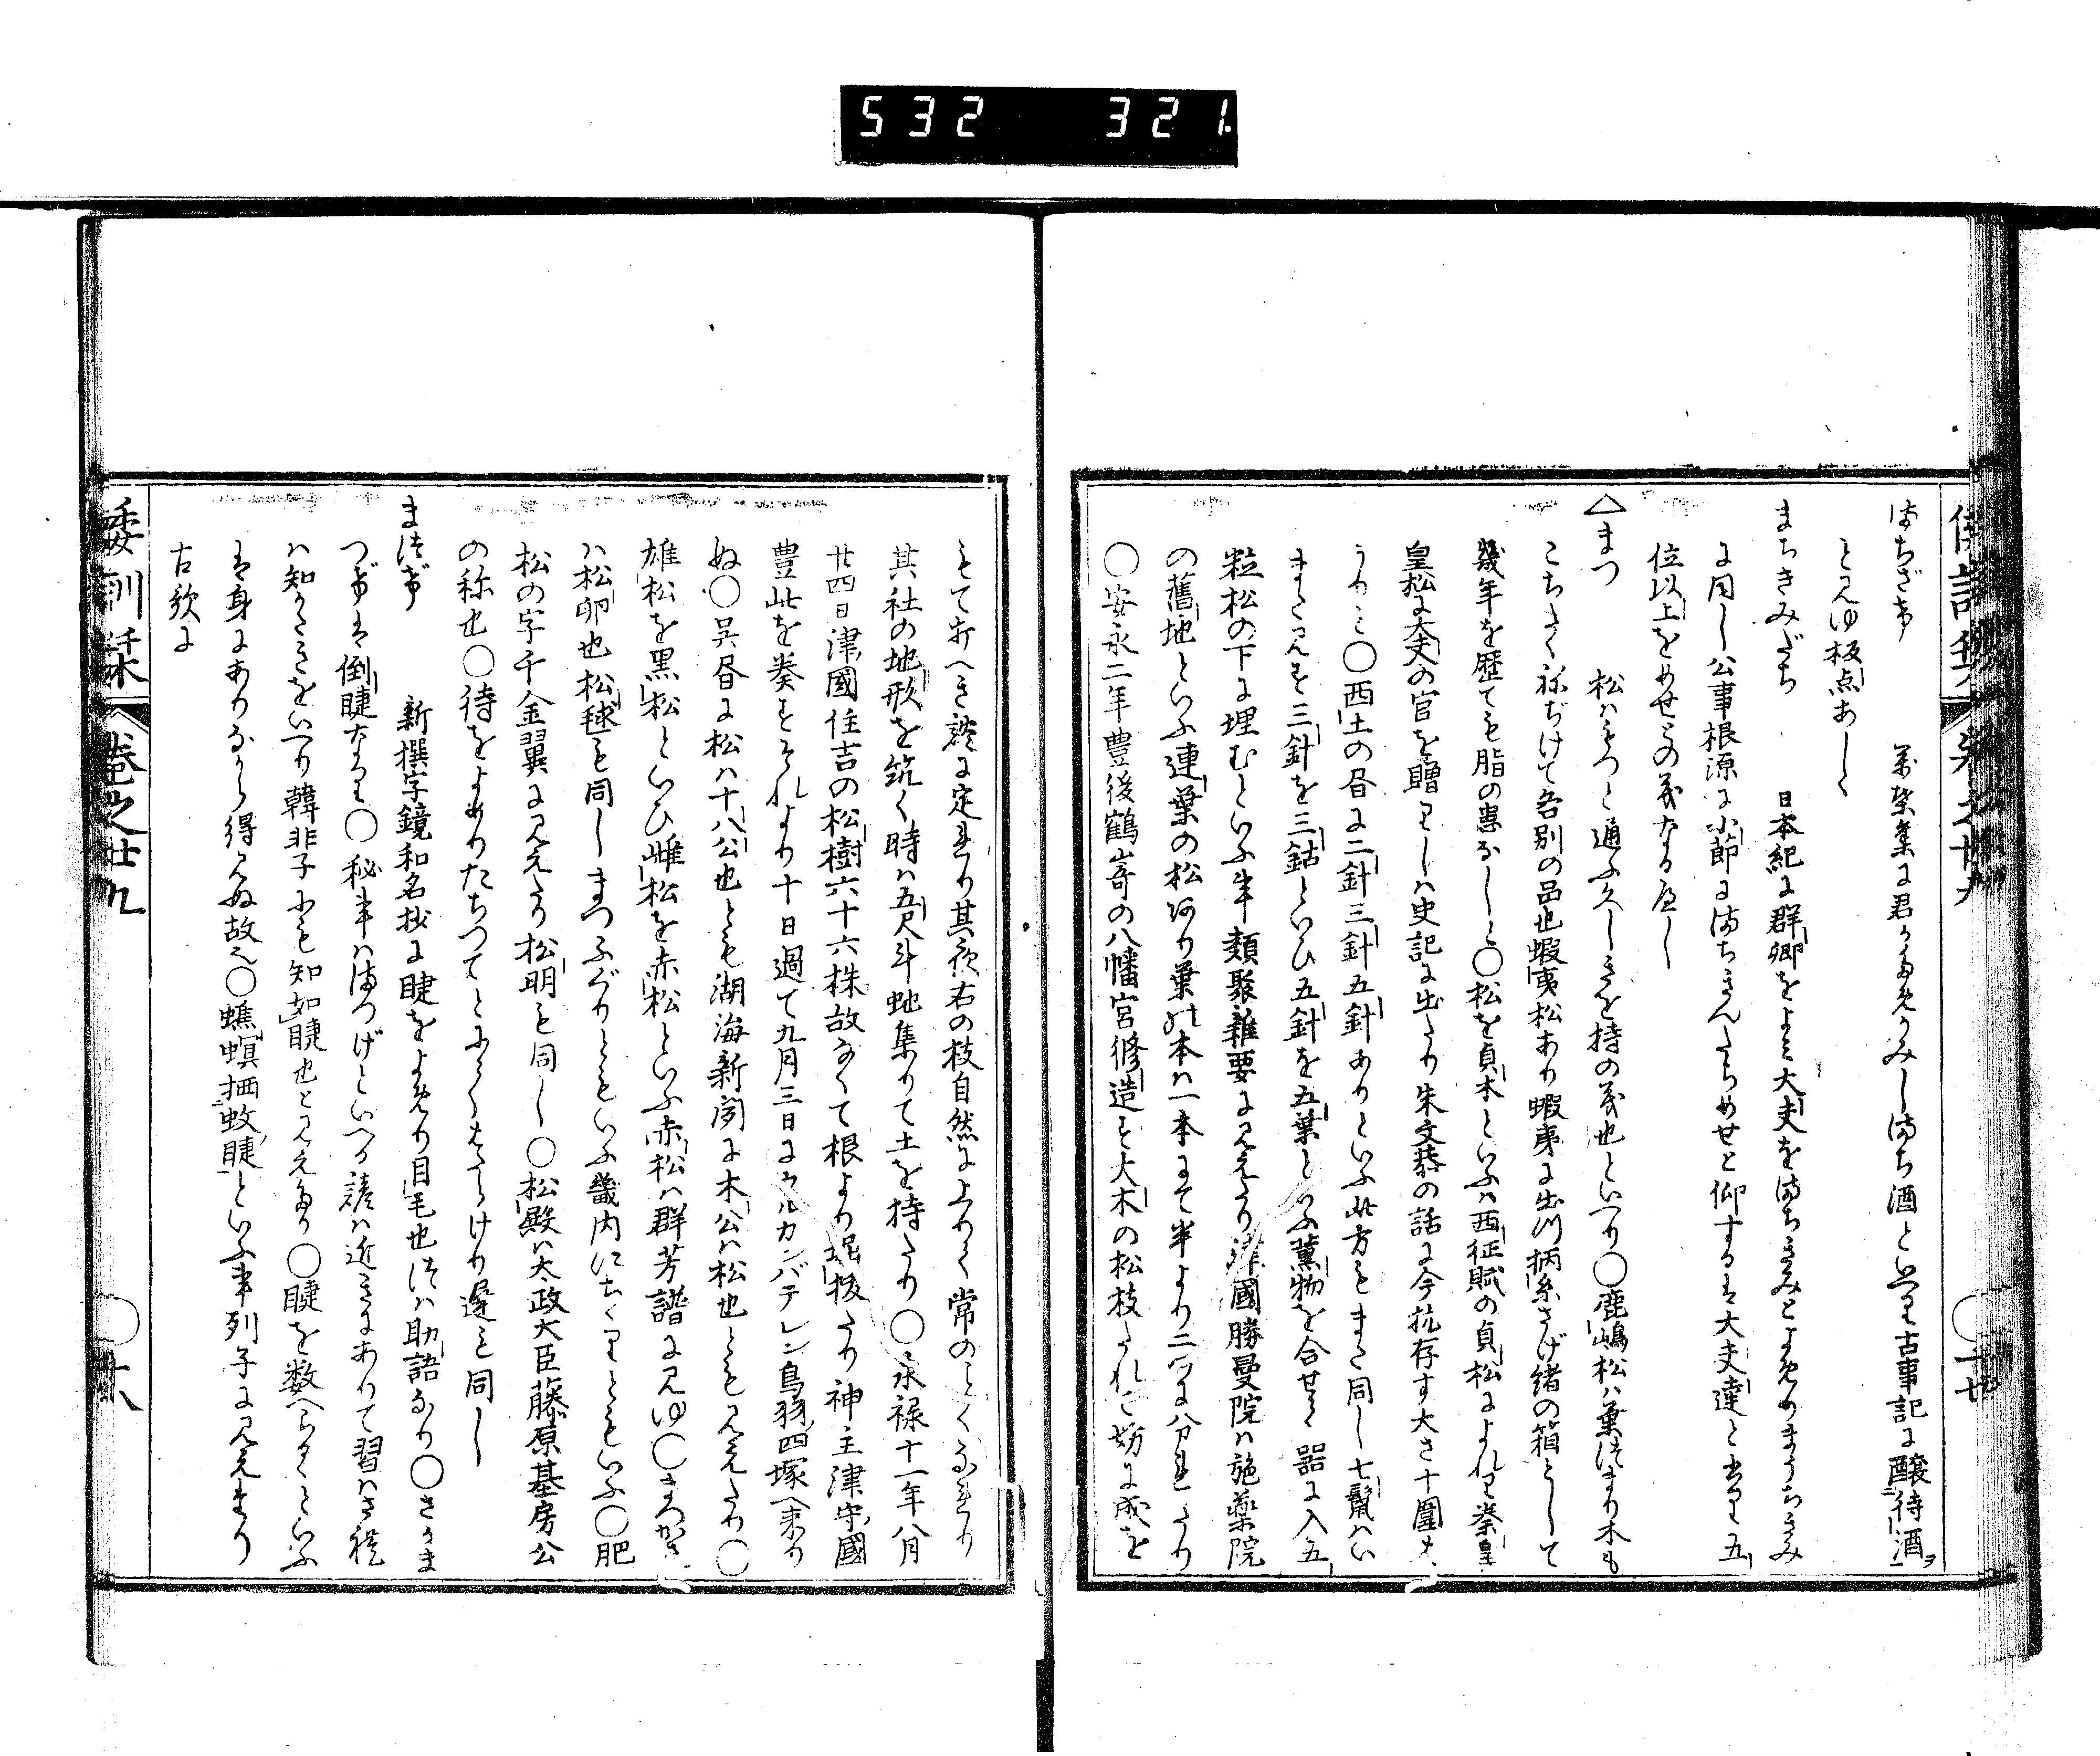 532 321
まちざけ 萬葉集に君かためかみしまち酒といへり古事記に醸_二待酒_一ヲ
とみゆ板点あしゝ
まちきみだち 日本紀に群卿をよみ大夫をまちきみとよめりまうちきみ
に同し公事根源に小節にまちきんたちめせと仰するは大夫達と書り五
位以上をめせとの義なるへし
△まつ 松はもつと通ふ久しきを持の義也といへり○鹿嶋松は葉つまり木も
こちたくねぢけて各別の品也蝦夷松あり蝦夷に出刀柄糸さげ緒の箱として
幾年を歴ても脂の患なしと○松を貞木といふは西征賦の貞松によれり秦皇
皇松に大夫の官を贈りしは史記に出たり朱文恭の話に今猶存す大さ十圍
うりと○西土の唇に二針三針五針ありといふ此方もまた同し七鬣はい
またみす三針を三鈷といひ五針を五葉といふ薫物を合せて器に入五
粒松の下に埋むといふ事類聚雜要にみえたり津國勝曼院は施藥院
の舊地といふ連葉の松あり葉の本は一本にて半より二つに分れたり
○安永二年豊後鶴嵜の八幡宮修造す大木の松枝たれて妨に成を
もて折へき談に定まり其夜右の枝自然に上りて常のことくなれり
其社の地形を築く時は五尺斗虵集りて土を持たり○永禄十一年八月
廿四日津國住吉の松樹六十六株故なくて根より堀拔たり神主津守國
豊此を奏すそれより十日過て九月三日にウルカンバテレン鳥羽四塚へ来り
ぬ○呉昏に松は十八公也とも湖海新聞に木公は松也ともみえたり○
雄松を黒松といひ雌松を赤松といふ赤松は群芳譜にみゆ○まつかさ
は松卵也松毬も同しまつふぐりともいふ畿内にちくりともいふ○肥
松の字千金翼にみえたり松明も同し○松殿は太政大臣藤原基房公
の称也○待をよめりたちつてとにてはたらけり遲も同し
まつげ 新撰字鏡和名抄に睫をよめり目毛也つは助語なり○さかま
つげは倒睫なり○秘事はまつげといへる諺は近きにありて習はさ禮
は知かたきをいへり韓非子にも知如睫也とみえたり○睫を数へらるといふ
は身にありながら得みぬ故也○蟭螟栖_二蚊睫_一といふ事列子にみえたり
古歌に
倭訓栞 巻之廿九 ○十八